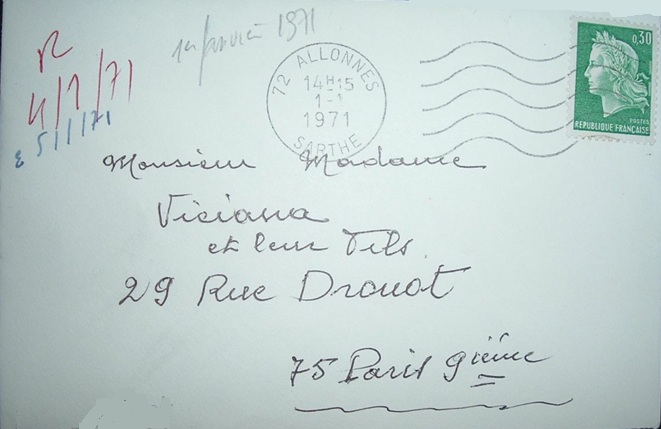 R
4/1/71
E 5/1/71
1er janvier 1971
72 ALLONNES
14H15
1-1
1971
SARTHE
0,30
POSTES
REPUBLIQUE FRANÇAISE
Monsieur Madame
Viciana
et leur Fils
29 Rue Drouot
75 Paris 9ième